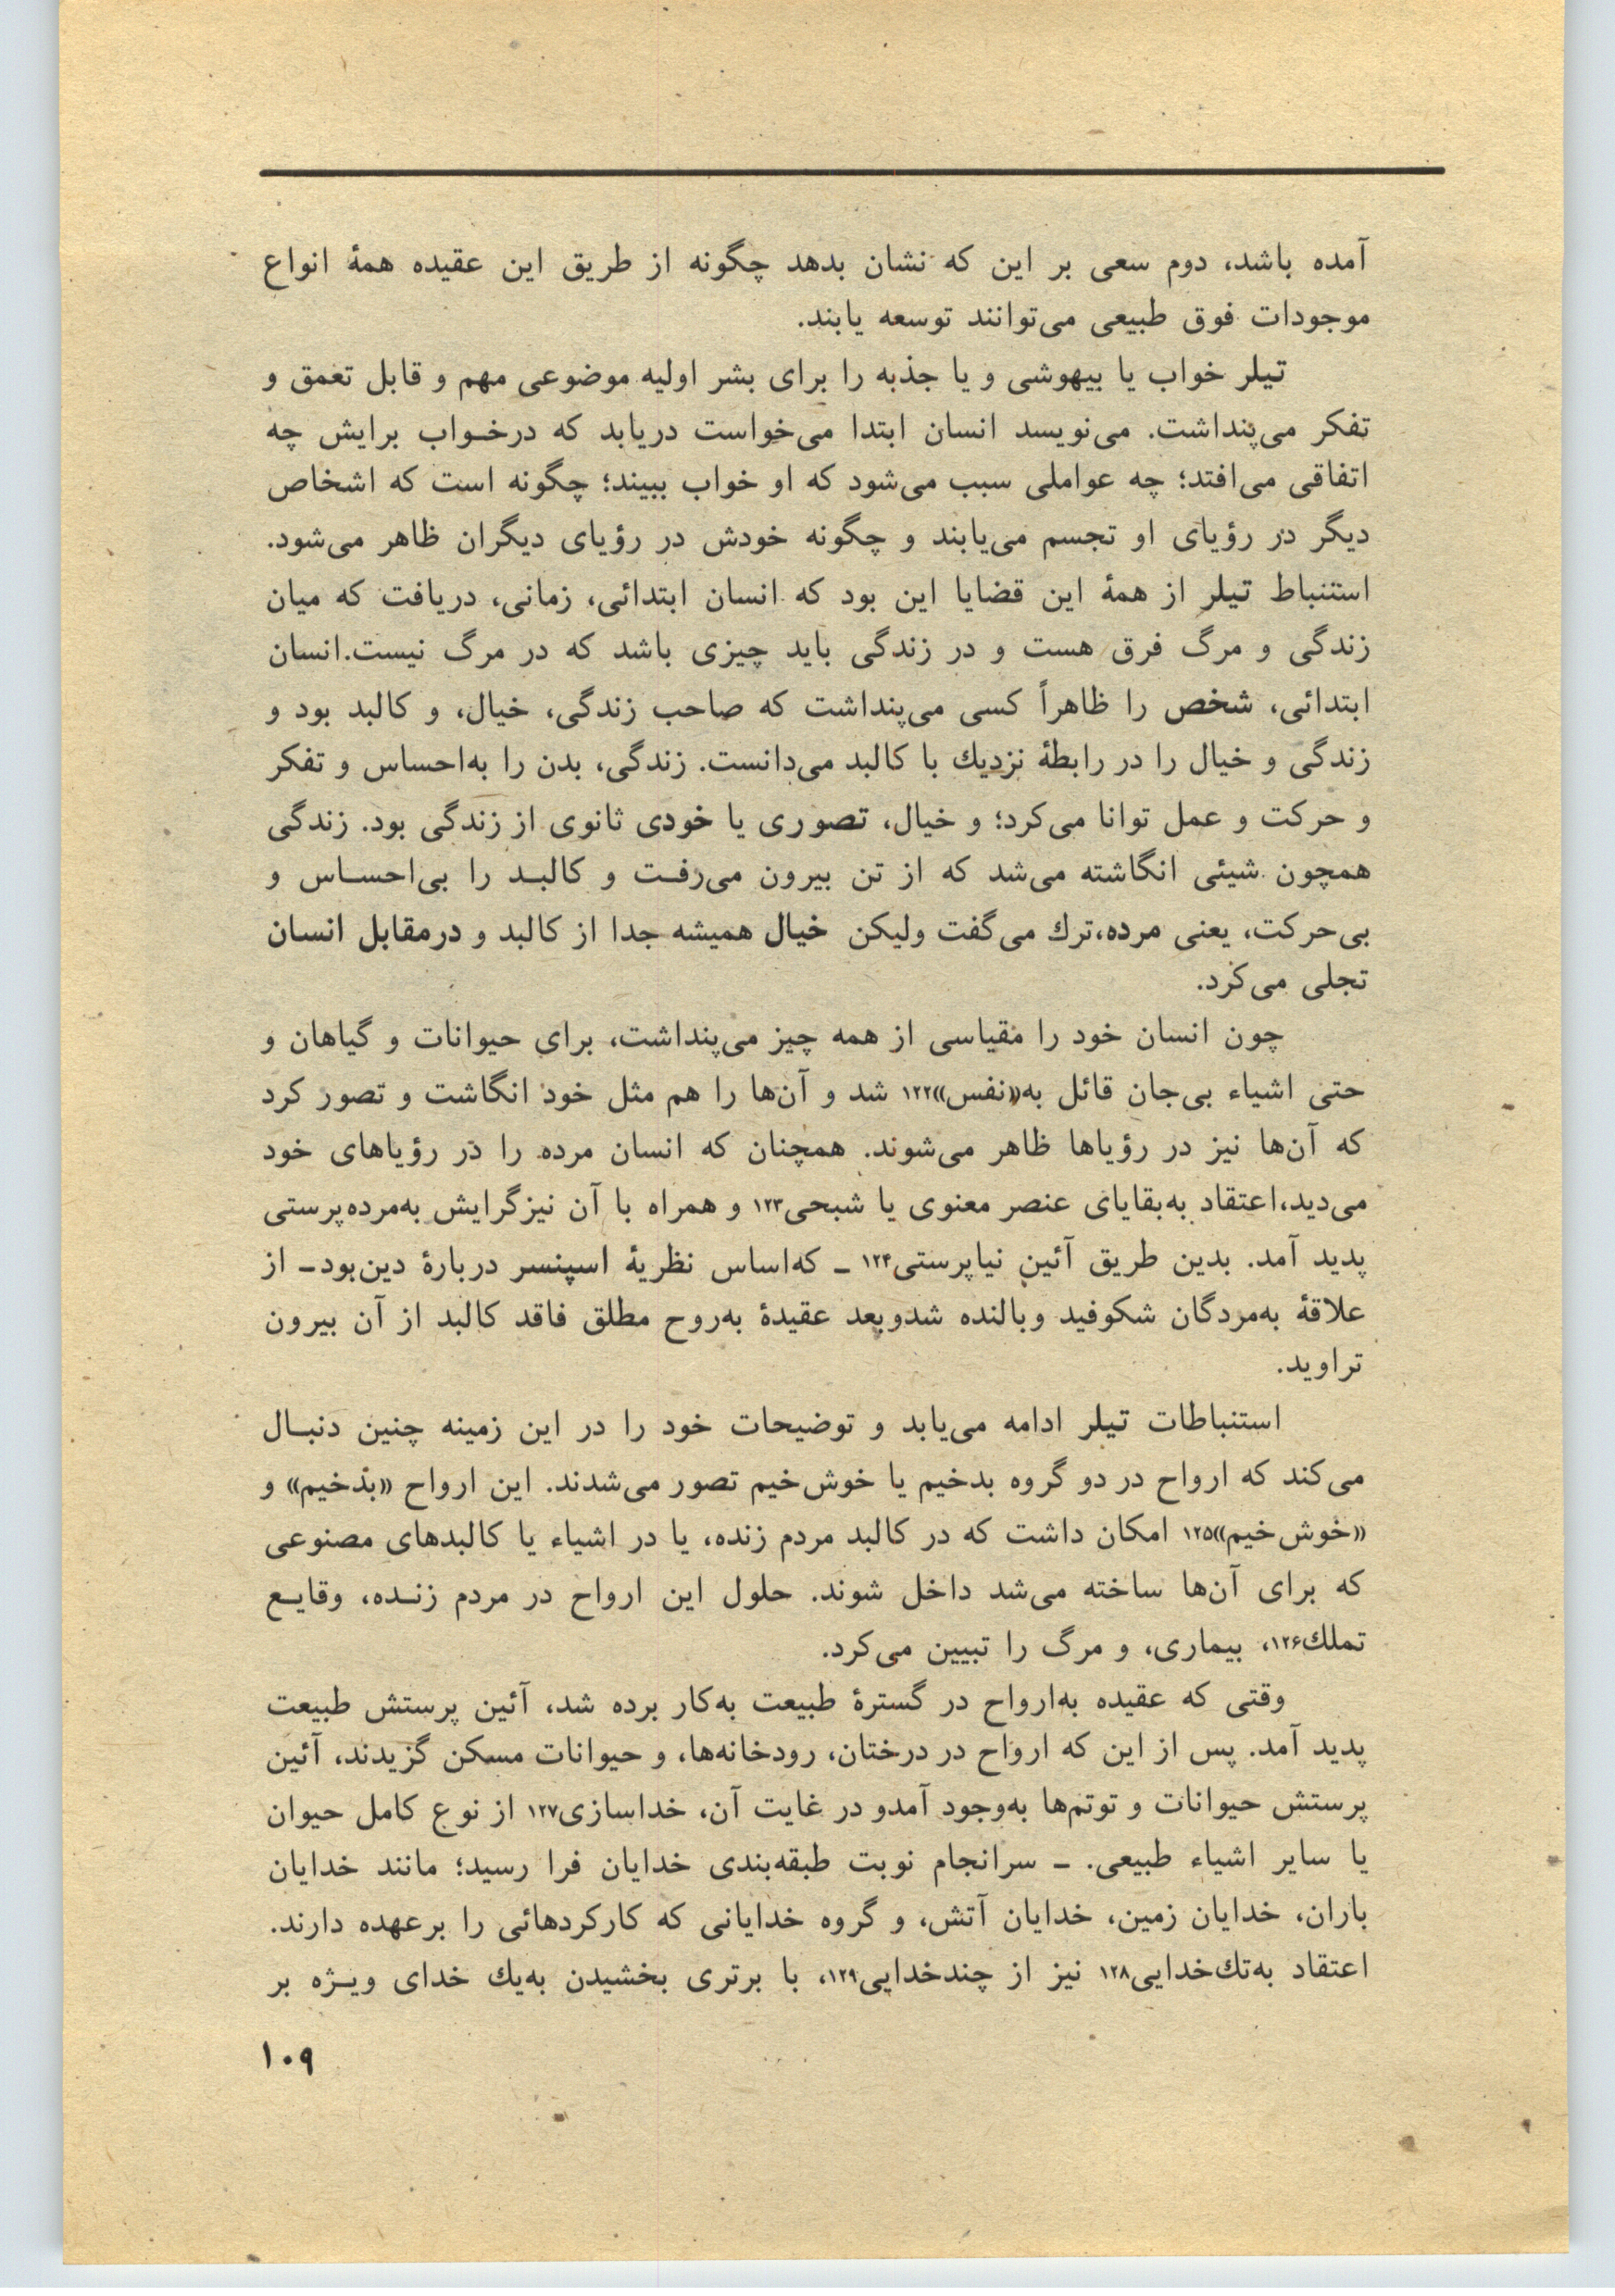 آمده باشد، دوم سعی بر این که نشان بدهد چگونه از طریق این عقیده همهٔ انواع
موجودات فوق طبیعی می‌توانند توسعه یابند.
تیلر خواب یا بیهوشی و یا جذبه را برای بشر اولیه موضوعی مهم و قابل تعمق و
تفکر می‌پنداشت. می‌نویسد انسان ابتدا می‌خواست دریابد که درخواب برایش چه
اتفاقی می‌افتد؛ چه عواملی سبب می‌شود که او خواب ببیند؛ چگونه است که اشخاص
دیگر در رؤیای او تجسم می‌یابند و چگونه خودش در رؤیای دیگران ظاهر می‌شود.
استنباط تیلر از همهٔ این قضایا این بود که انسان ابتدائی، زمانی، دریافت که میان
زندگی و مرگ فرق هست و در زندگی باید چیزی باشد که در مرگ نیست.انسان
ابتدائی، شخص را ظاهراً کسی می‌پنداشت که صاحب زندگی، خیال، و کالبد بود و
زندگی و خیال را در رابطهٔ نزدیك با کالبد می‌دانست. زندگی، بدن را به‌احساس و تفکر
و حرکت و عمل توانا می‌کرد؛ و خیال، تصوری یا خودی ثانوی از زندگی بود. زندگی
همچون شیئی انگاشته می‌شد که از تن بیرون می‌رفت و کالبد را بی‌احساس و
بی‌حرکت، یعنی مرده،ترك می‌گفت ولیکن خیال همیشه جدا از کالبد و درمقابل انسان
تجلی می‌کرد.
چون انسان خود را مقیاسی از همه چیز می‌پنداشت، برای حیوانات و گیاهان و
حتی اشیاء بی‌جان قائل به«نفس»۱۲۲ شد و آن‌ها را هم مثل خود انگاشت و تصور کرد
که آن‌ها نیز در رؤیاها ظاهر می‌شوند. همچنان که انسان مرده را در رؤیاهای خود
می‌دید،اعتقاد به‌بقایای عنصر معنوی یا شبحی۱۲۳ و همراه با آن نیزگرایش به‌مرده‌پرستی
پدید آمد. بدین طریق آئین نیاپرستی۱۲۴ ـ که‌اساس نظریهٔ اسپنسر دربارهٔ دین‌بود ـ از
علاقهٔ به‌مردگان شکوفید وبالنده شدوبعد عقیدهٔ به‌روح مطلق فاقد کالبد از آن بیرون
تراوید.
استنباطات تیلر ادامه می‌یابد و توضیحات خود را در این زمینه چنین دنبال
می‌کند که ارواح در دو گروه بدخیم یا خوش‌خیم تصور می‌شدند. این ارواح «بدخیم» و
«خوش‌خیم»۱۲۵ امکان داشت که در کالبد مردم زنده، یا در اشیاء یا کالبدهای مصنوعی
که برای آن‌ها ساخته می‌شد داخل شوند. حلول این ارواح در مردم زنده، وقایع
تملك۱۲۶، بیماری، و مرگ را تبیین می‌کرد.
وقتی که عقیده به‌ارواح در گسترهٔ طبیعت به‌کار برده شد، آئین پرستش طبیعت
پدید آمد. پس از این که ارواح در درختان، رودخانه‌ها، و حیوانات مسکن گزیدند، آئین
پرستش حیوانات و توتم‌ها به‌وجود آمدو در غایت آن، خداسازی۱۲۷ از نوع کامل حیوان
یا سایر اشیاء طبیعی. ـ سرانجام نوبت طبقه‌بندی خدایان فرا رسید؛ مانند خدایان
باران، خدایان زمین، خدایان آتش، و گروه خدایانی که کارکردهائی را برعهده دارند.
اعتقاد به‌تك‌خدایی۱۲۸ نیز از چندخدایی۱۲۹، با برتری بخشیدن به‌یك خدای ویژه بر
۱۰۹